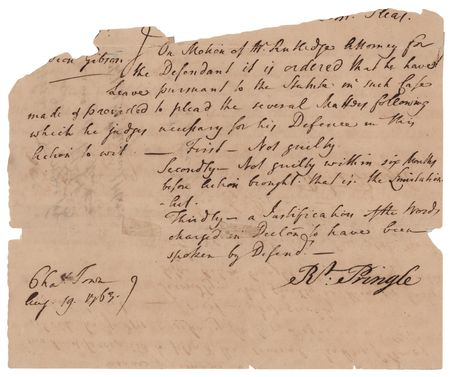 Gibson } On Motion of Mr. Rutledge Attorney for
the Defendant it is ordered that he have
Leave pursuant to the Statute in such Case
made & provided to plead the several Matters following
which he judges necessary for his Defence in this
Action to wit — First — Not guilty
Secondly — Not guilty within six Months
before Action brought that is the Limitation
Act.
Thirdly — a Justification of the Words
charged in Declon. to have been
spoken by Defendt.
Chas. Town }
Aug. 19. 1763.
Rt. Pringle